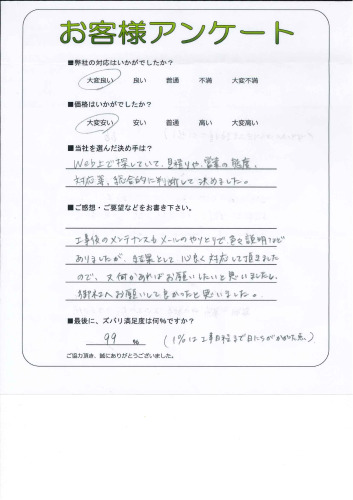 お客様アンケート
■弊社の対応はいかがでしたか？
大変良い 良い 普通 不満 大変不満
■価格はいかがでしたか？
大変安い 安い 普通 高い 大変高い
■当社を選んだ決め手は？
Web上で探していて、見積りや、営業の態度、
対応等、総合的に判断して決めました。
■ご感想・ご要望などをお書き下さい。
工事後のメンテナンスもメールのやりとりで色々説明など
ありましたが、結果として心良く対応して頂きました
ので、又何かあればお願いしたいと思いましたし、
御社へお願いして良かったと思いました。
■最後に、ズバリ満足度は何％ですか？
99 ％ (1%は工事日程まで日にちがかかった点。)
ご協力頂き、誠にありがとうございました。